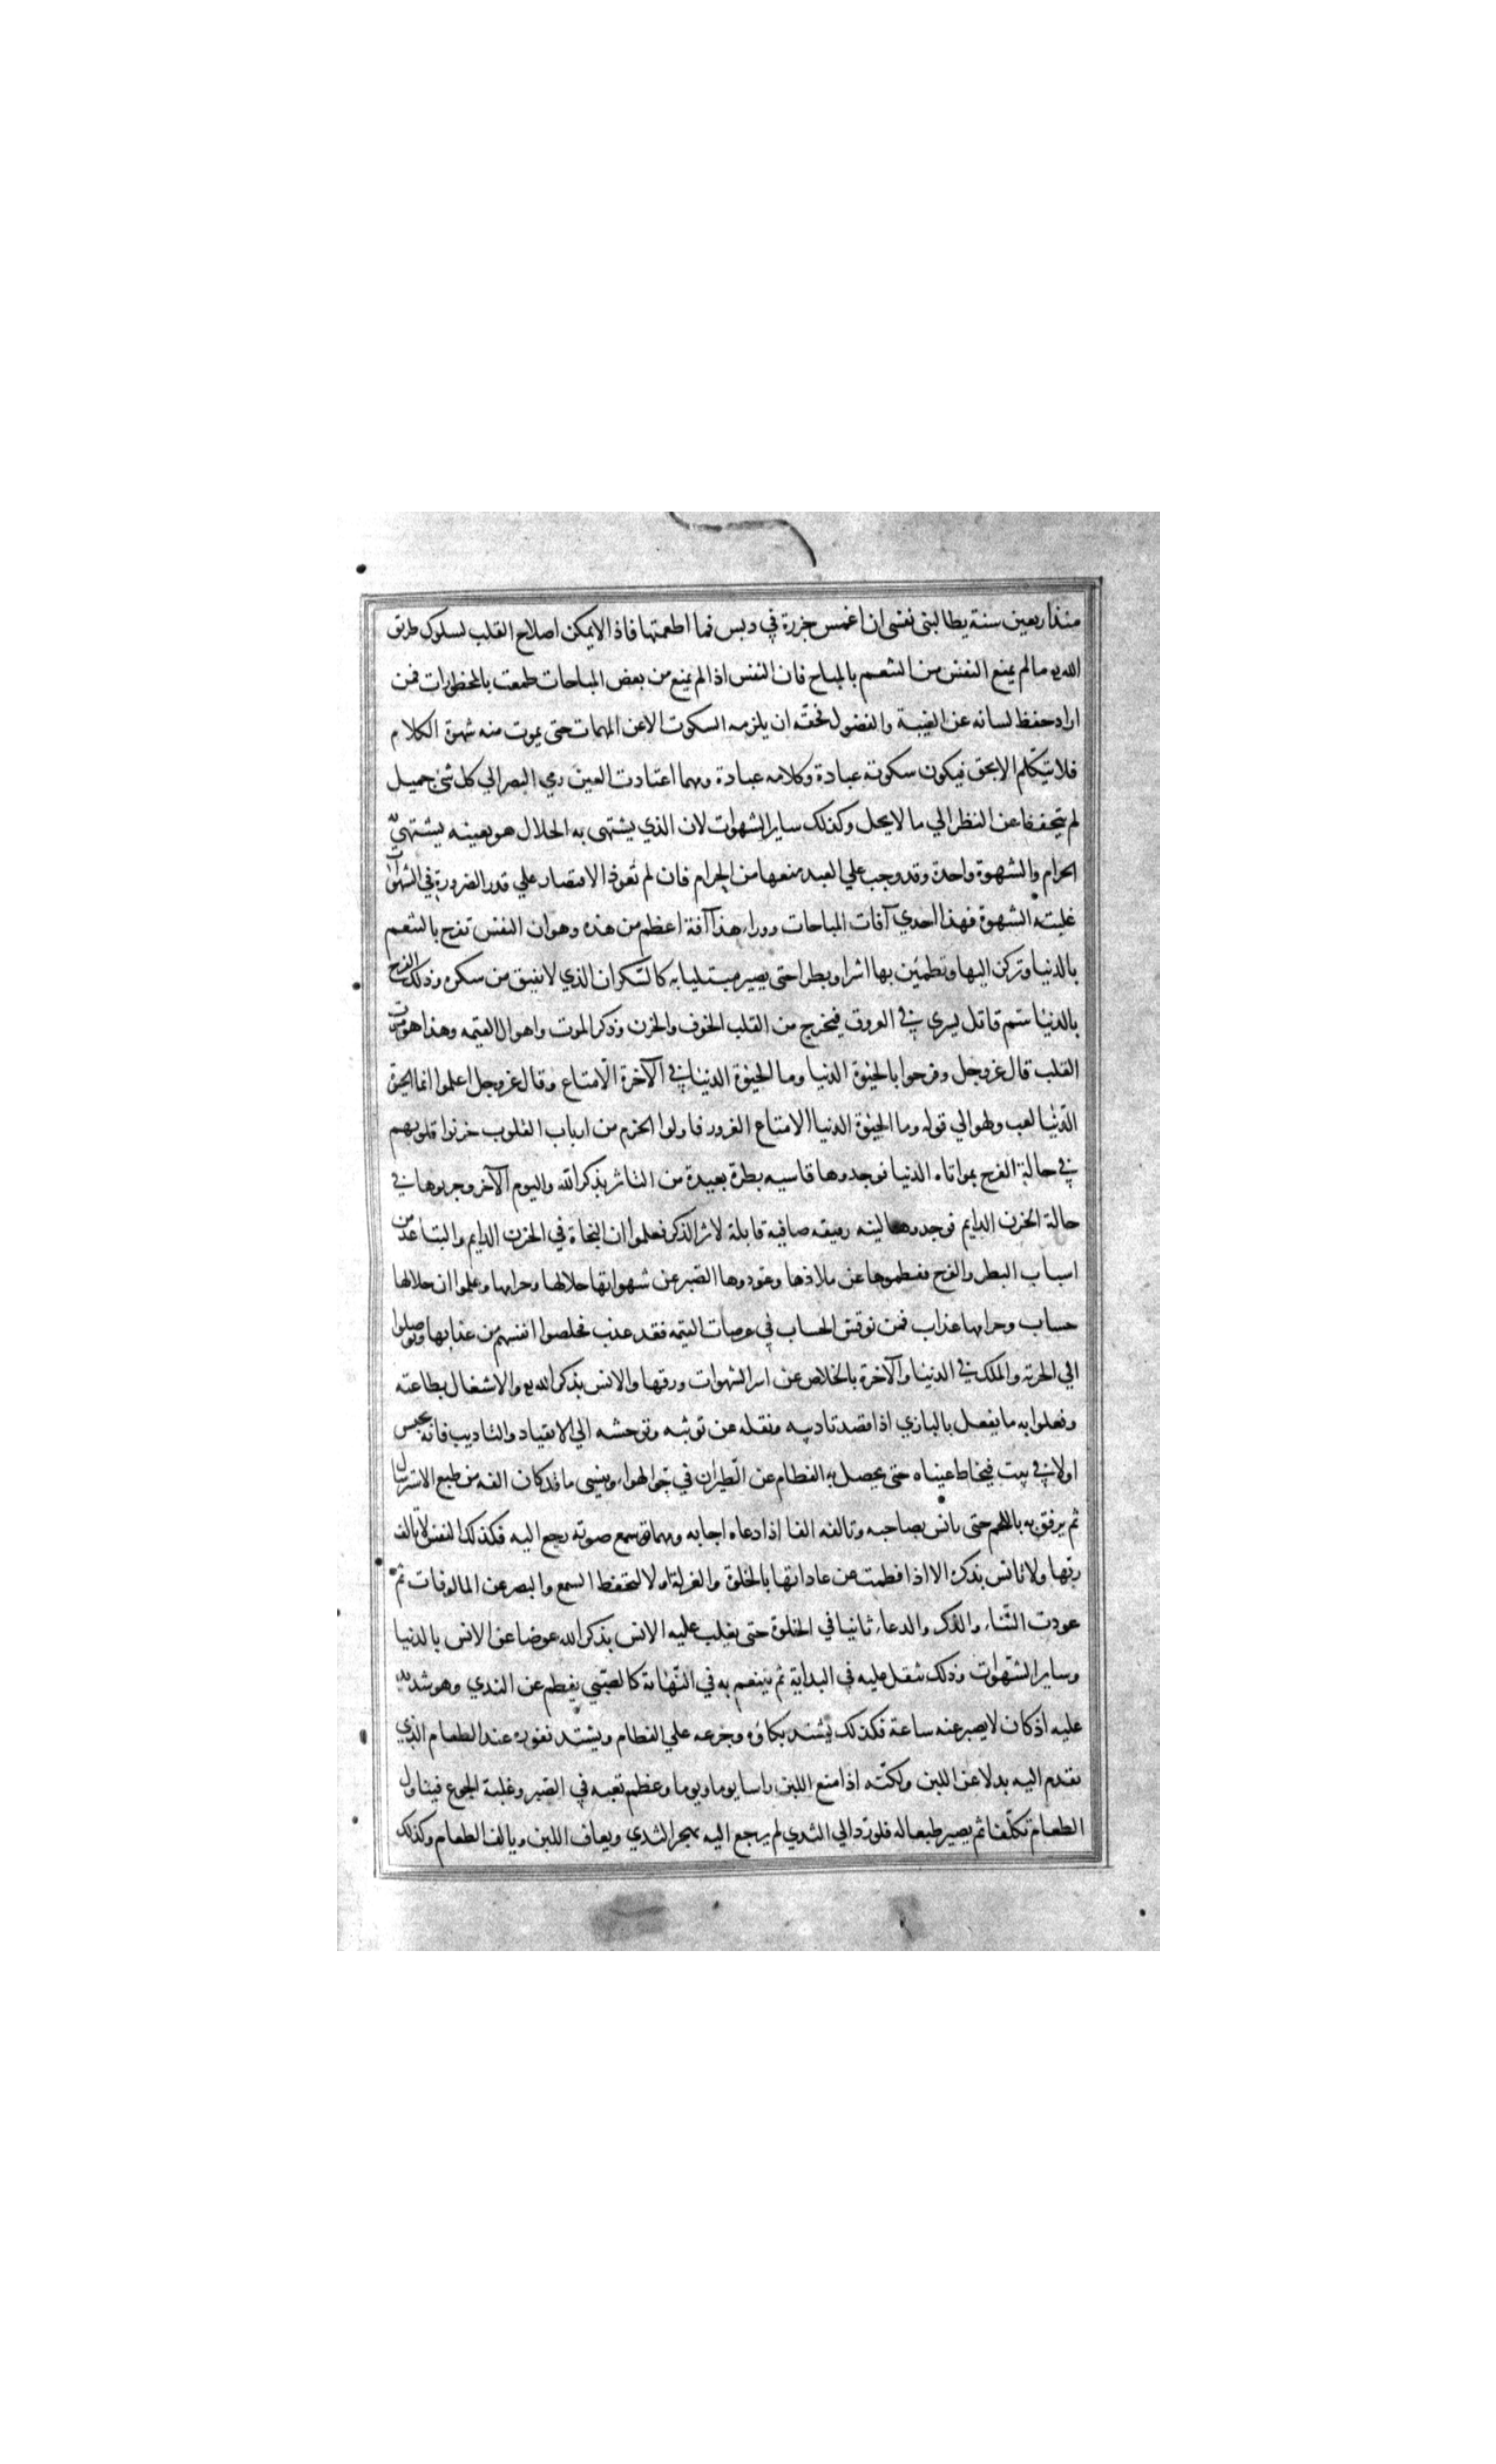 منذ اربعين سنة يطالبنى نفسى ان اغمس جزرة في دبس فما اطعمتها فاذا لايمكن اصلاح القلب لسلوك طريق
الله مالم يمنع النفس من التنعم بالمباح فان النفس اذا لم يمنع من بعض المباحات طمعت بالمحظورات فمن
اراد حفظ لسانه عن الغيبة والفضول فحقه ان يلزمه السكوت الاعن المهمات حتى يموت منه شهوة الكلام
فلا يتكلم الا بحق فيكون سكوته عبادة وكلامه عبادة ومهما اعتادت العين رمي البصر الي كل شئ جميل
لم يتحفظ عن النظر الي ما لايحل وكذلك ساير الشهوات لان الذي يشتهى به الحلال هو بعينه يشتهي به
الحرام والشهوة واحدة وقد وجب علي العبد منعها من الحرام فان لم تعود الاقتصار علي قدر الضرورة في الشهوات
غلبته الشهوة فهذا احدي آفات المباحات ووراء هذا آفة اعظم من هذه وهو ان النفس تفرح بالتنعم
بالدنيا وتركن اليها وتطمئن بها اشرا وبطرا حتى يصير مبتليا به كالسكران الذي لا يفيق من سكره وذلك الفرح
بالدنيا سم قاتل يسري في العروق فيخرج من القلب الخوف والحزن وذكر الموت واهوال القيمه وهذا هو موت
القلب قال عز وجل وفرحوا بالحيوة الدنيا وما الحيوة الدنيا في الآخرة الا متاع وقال عز وجل اعلموا انما الحيوة
الدنيا لعب ولهو الي قوله وما الحيوة الدنيا الا متاع الغرور فاولوا الحزم من ارباب القلوب جربوا قلوبهم
في حالة الفرح بمواتاه الدنيا فوجدوها قاسيه بطرة بعيدة من التاثر بذكر الله واليوم الآخر وجربوها في
حالة الحزن الدايم فوجدوها لينه رقيقه صافيه قابلة لاثر الذكر فعلموا ان النجاة في الحزن الدايم والتباعد من
اسباب البطر والفرح ففطموها عن ملاذها وعودوها الصبر عن شهواتها حلالها وحرامها وعلموا ان حلالها
حساب وحرامها عذاب فمن نوقش الحساب في عرصات القيمه فقد عذب فخلصوا انفسهم من عذابها وتوصلوا
الي الحرية والملك في الدنيا والآخرة بالخلاص عن اسر الشهوات ورقها والانس بذكر الله والاشغال بطاعته
وفعلوا به ما يفعل بالبازي اذا قصد تاديبه ونقله عن توثبه وتوحشه الي الانقياد والتاديب فانه يحبس
اولا في بيت فيخاط عيناه حتى يحصل به الفطام عن الطيران في جو الهواء وينسى ما قد كان الفه من طبع الاسترسال
ثم يرفق به باللحم حتى يانس بصاحبه وتالفه الفا اذا دعاه اجابه ومهما سمع صوته رجع اليه فكذلك النفس لا تالف
ربها ولا تانس بذكره الا اذا فطمت عن عاداتها بالخلوة والعزلة اولا لتحفظ السمع والبصر عن المالوفات ثم
عودت الثناء والذكر والدعاء ثانيا في الخلوة حتى يغلب عليه الانس بذكر الله عوضا عن الانس بالدنيا
وساير الشهوات وذلك يثقل عليه في البداية ثم يتنعم به في النهاية كالصبي يفطم عن الثدي وهو شديد
عليه اذ كان لا يصبر عنه ساعة فكذلك يشتد بكاؤه وجزعه علي الفطام ويشتد نفوره عند الطعام الذي
يقدم اليه بدلا عن اللبن ولكنه اذا منع اللبن راسا يوما ويوما وعظم تعبه في الصبر وغلبة الجوع فيناول
الطعام تكلفا ثم يصير طبعا له فلو رد الي الثدي لم يرجع اليه بهجر الثدي ويعاف اللبن ويالف الطعام وكذلك